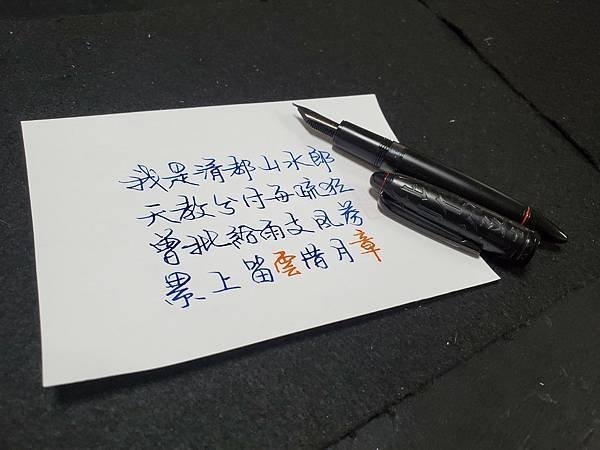 我是清都山水郎
天教分付与疏狂
曾批給雨支風券
累上留雲借月章